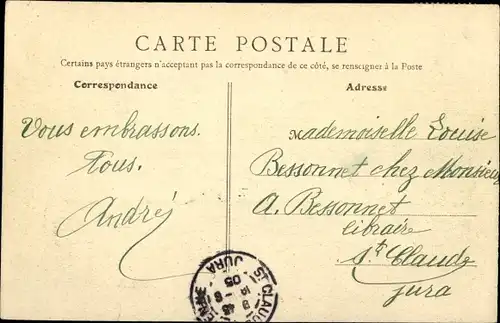 CARTE POSTALE
Certains pays étrangers n'acceptant pas la correspondance de ce côté, se renseigner à la Poste
Correspondance
Adresse
Vous embrassons.
Tous.
André
Mademoiselle Louise
Bessonnet chez Monsieur
A. Bessonnet
libraire
St. Claude
Jura
ST CLAUDE
JURA
05